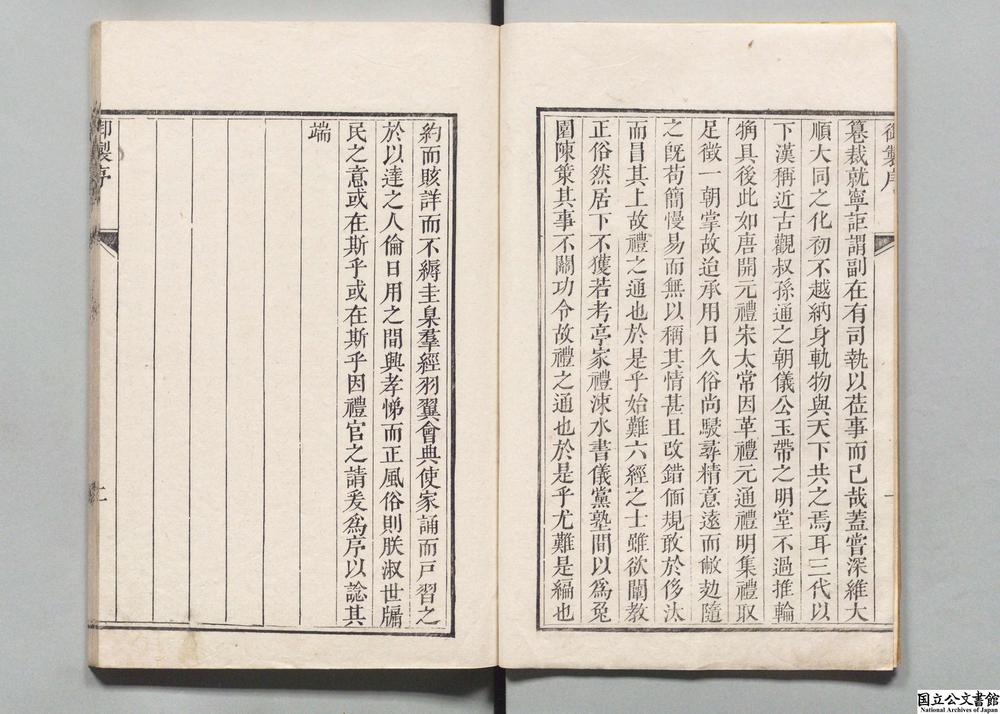 御製序
一
纂裁就寧詎謂副在有司執以莅事而已哉蓋嘗深維大
順大同之化初不越納身軌物與天下共之焉耳三代以
下漢稱近古觀叔孫通之朝儀公玉帶之明堂不過推輪
觕具後此如唐開元禮宋太常因革禮元通禮明集禮取
足徵一朝掌故迨承用日久俗尚駁蕁精意遠而敝攰隨
之旣苟簡慢易而無以稱其情甚且改錯偭規敢於侈汰
而昌其上故禮之通也於是乎始難六經之士雖欲闡教
正俗然居下不獲若考亭家禮涑水書儀黨塾間以爲兔
園陳策其事不關功令故禮之通也於是乎尤難是編也
約而賅詳而不縟圭臬羣經羽翼會典使家誦而戸習之
於以達之人倫日用之間興孝悌而正風俗則朕淑世牖
民之意或在斯乎或在斯乎因禮官之請爰爲序以諗其
端
御製序
國立公文書館
National Archives of Japan